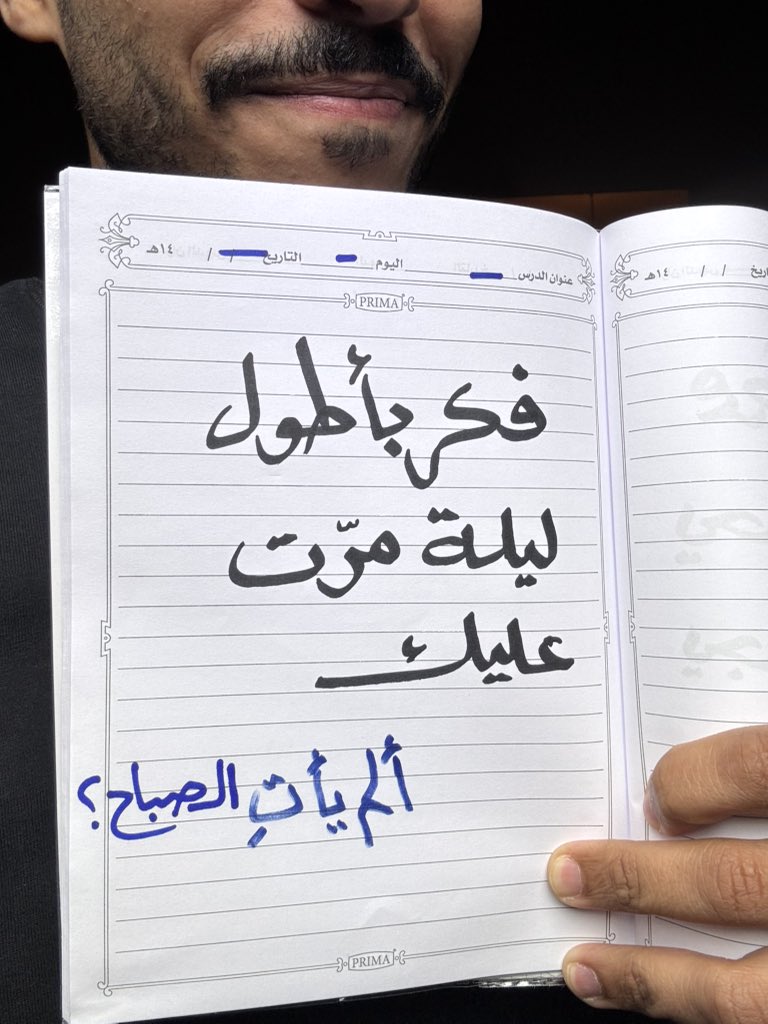 عنوان الدرس اليوم التاريخ / / ١٤هـ
PRIMA
فكر بأطول
ليلة مرّت
عليك
ألم يأتِ الصباح؟
PRIMA
/ / ١٤هـ